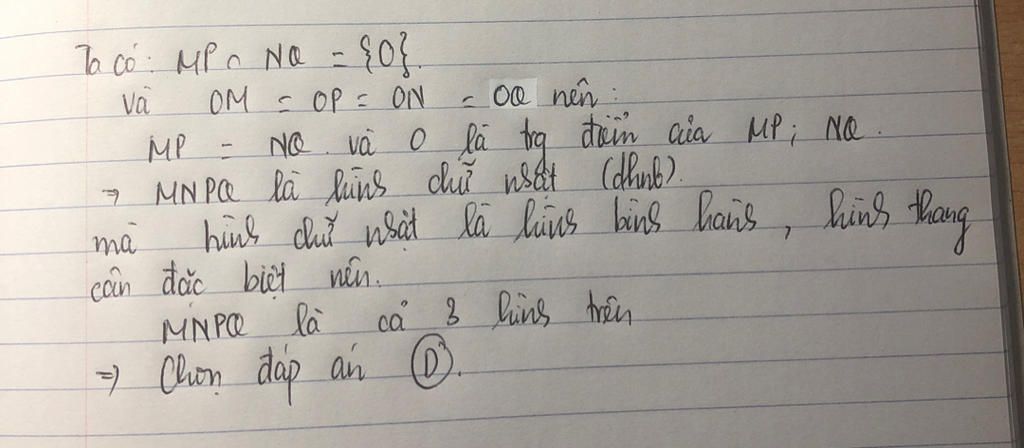 Ta có: MP ∩ NQ = {O}.
và OM = OP = ON = OQ nên:
MP = NQ và O là trg điểm của MP; NQ.
→ MNPQ là hình chữ nhật (dhnb).
mà hình chữ nhật là hình bình hành, hình thang
cân đặc biệt nên.
MNPQ là cả 3 hình trên
⇒ Chọn đáp án D.